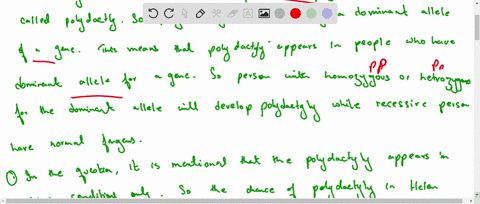 called polydactly. So a dominant allele
of a gene. This means that polydactyly appears in people who have
PP Pp
dominant allele for a gene. So person with homozygous or hetrozygous
for the dominant allele will develop polydactyly while recessive person
have normal fingers.
In the question, it is mentioned that the polydactyly appears in
conditions only. So the chance of polydactyly in Helen